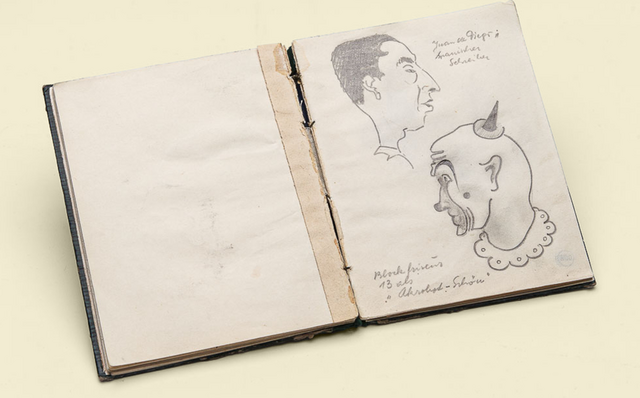 Juan de Diego :
spanischer
Schreiber
Blockfriseur
13 als
" Akrobat - Schön "